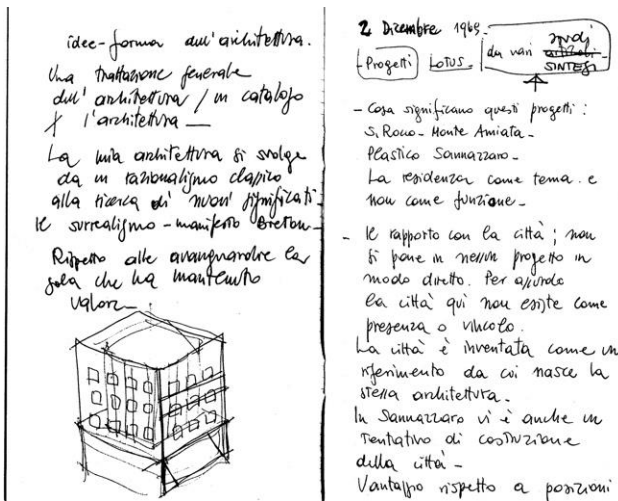 idee-forma dell'architettura.
Una trattazione generale
dell'architettura / un catalogo
x l'architettura —
La mia architettura si svolge
da un razionalismo classico
alla ricerca di nuovi significati.
Il surrealismo - manifesto Breton -
Rispetto alle avanguardie la
sola che ha mantenuto
valore -
2 Dicembre 1969.
Progetti LOTUS. da vari studi
SINTESI
- Cosa significano questi progetti:
S. Rocco - Monte Amiata -
Plastico Sannazzaro -
La residenza come tema e
non come funzione -
- Il rapporto con la città; non
si pone in nessun progetto in
modo diretto. Per assurdo
la città qui non esiste come
presenza o vincolo.
La città è inventata come un
riferimento da cui nasce la
stessa architettura.
In Sannazzaro vi è anche un
tentativo di costruzione
della città -
Vantaggio rispetto a posizioni